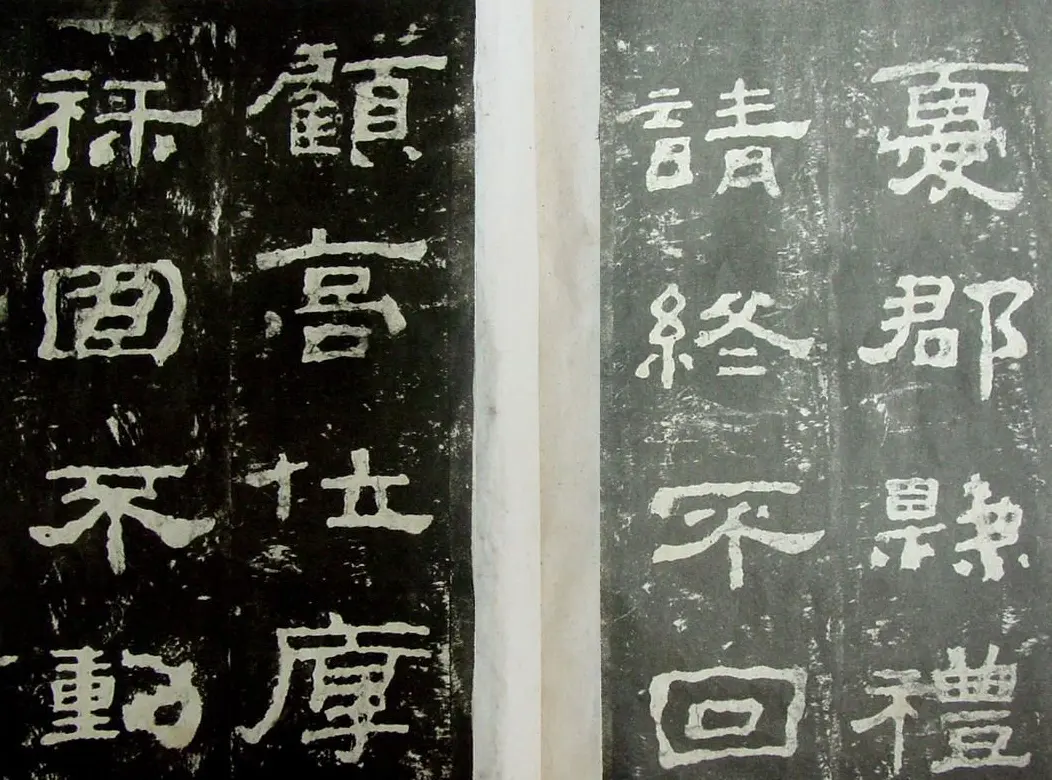 憂郡縣禮
請終不回
顧高位厚
祿固不動